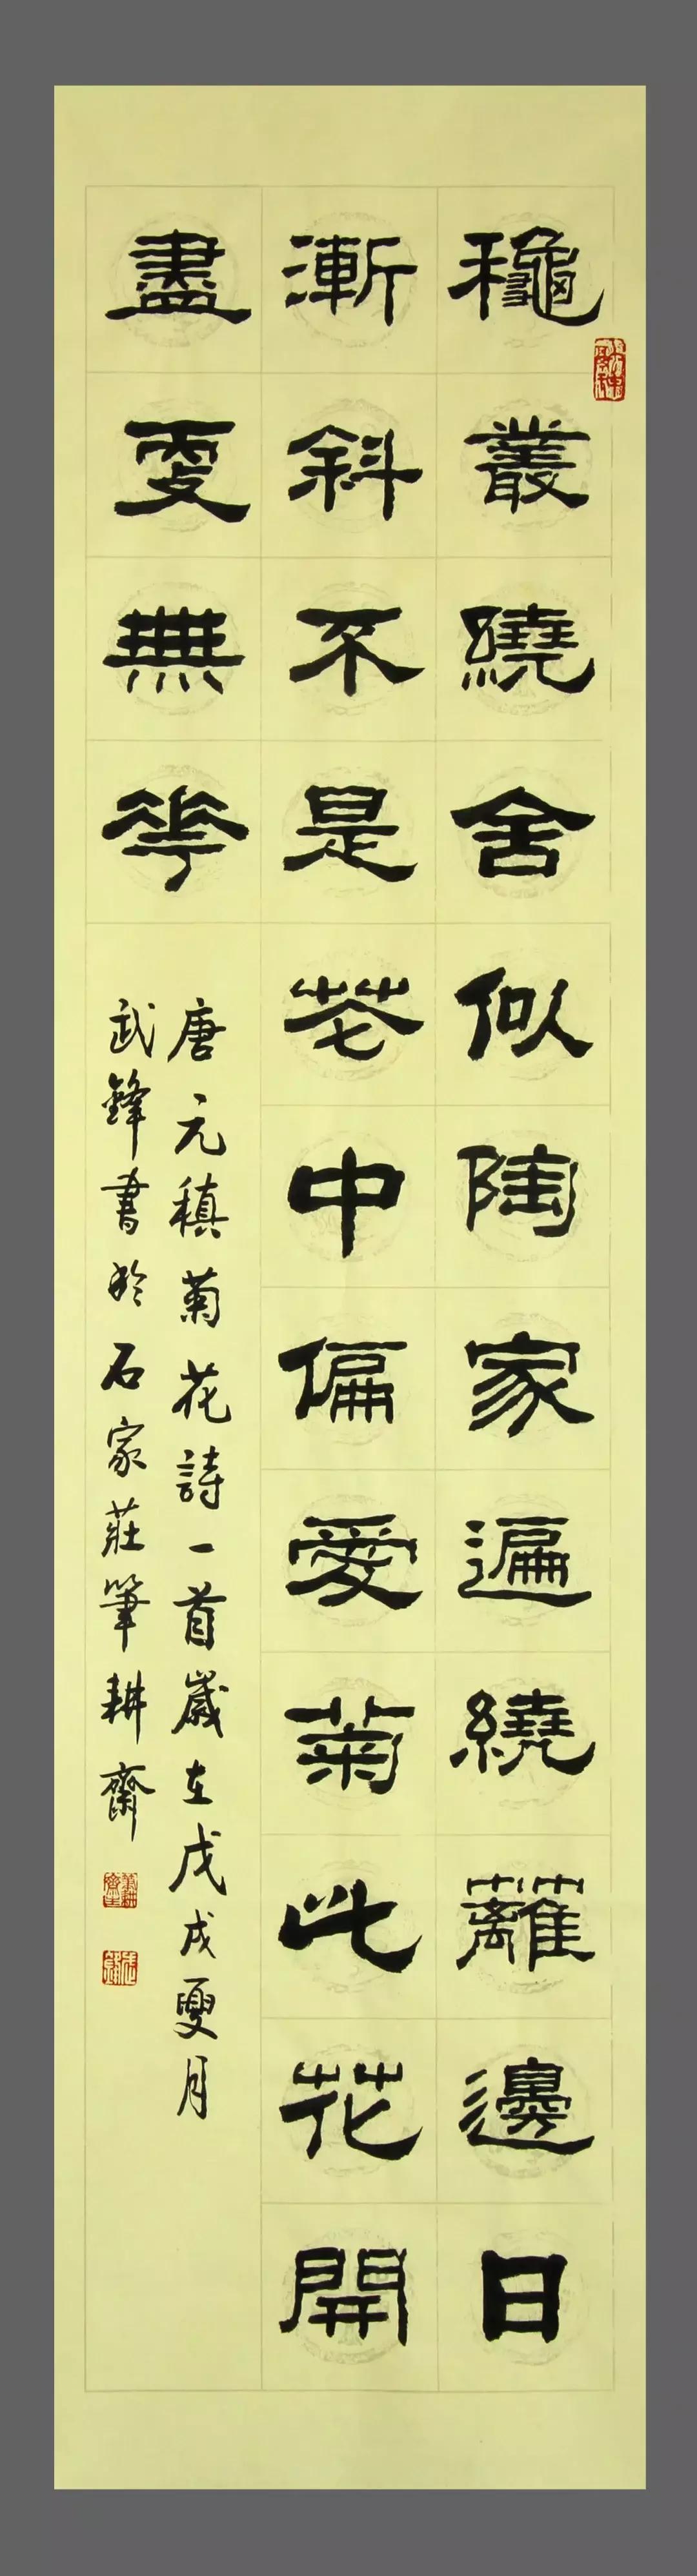 穐叢繞舍似陶家遍繞蘺邊日
漸斜不是芲中偏愛菊此花開
盡更無花
唐元稹菊花詩一首歲在戊戌夏月
武鋒書於石家莊筆耕齋